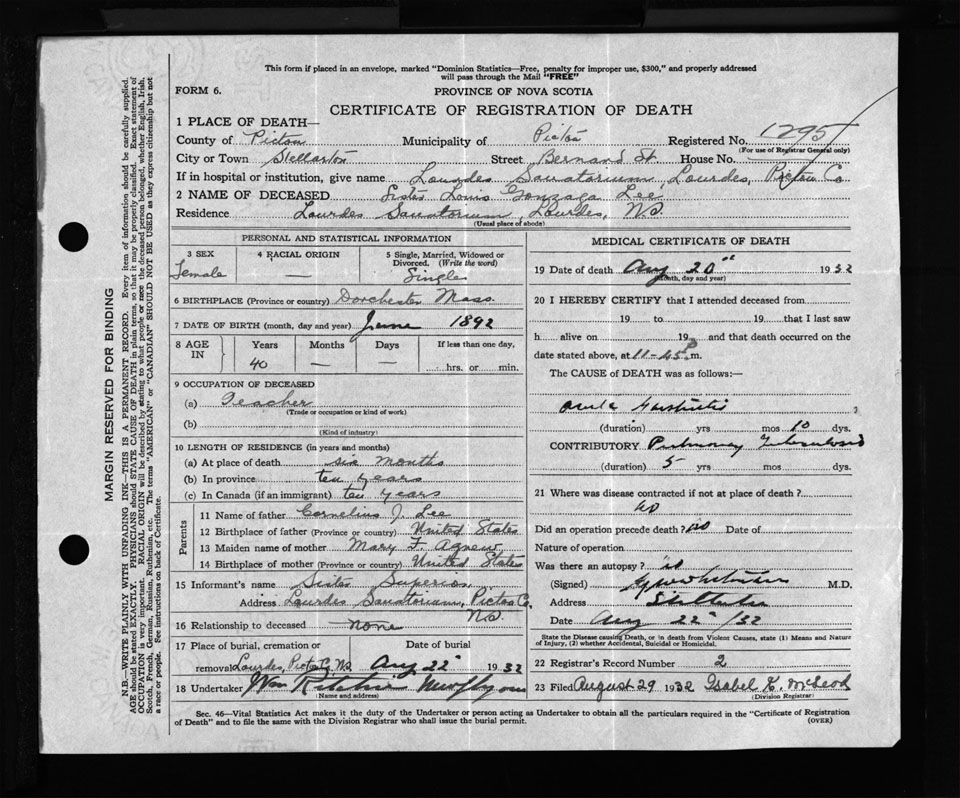 This form if placed in an envelope, marked "Dominion Statistics—Free, penalty for improper use, $300," and properly addressed
will pass through the Mail "FREE"
FORM 6.
PROVINCE OF NOVA SCOTIA
CERTIFICATE OF REGISTRATION OF DEATH
1 PLACE OF DEATH—
County of Pictou Municipality of Pictou Registered No. 1295
(For use of Registrar General only)
City or Town Stellarton Street Bernard St. House No.
If in hospital or institution, give name Lourdes Sanatorium, Lourdes, Pictou Co
2 NAME OF DECEASED Sister Louis Gonzaga Lee
Residence Lourdes Sanatorium Lourdes, N.S.
(Usual place of abode)
PERSONAL AND STATISTICAL INFORMATION
3 SEX 4 RACIAL ORIGIN 5 Single, Married, Widowed or
Divorced. (Write the word)
Female — Single
6 BIRTHPLACE (Province or country) Dorchester Mass.
7 DATE OF BIRTH (month, day and year) June 1892
8 AGE IN Years Months Days If less than one day,
40 — — hrs. or min.
9 OCCUPATION OF DECEASED
(a) Teacher
(Trade or occupation or kind of work)
(b)
(Kind of industry)
10 LENGTH OF RESIDENCE (in years and months)
(a) At place of death six months
(b) In province ten years
(c) In Canada (if an immigrant) ten years
Parents
11 Name of father Cornelius J. Lee
12 Birthplace of father (Province or country) United States
13 Maiden name of mother Mary F. Agnew
14 Birthplace of mother (Province or country) United States
15 Informant's name Sister Superior
Address Lourdes Sanatorium, Pictou Co.
N.S.
16 Relationship to deceased none
17 Place of burial, cremation or Date of burial
removal Lourdes, Pictou Co, N.S. Aug 22 1932
18 Undertaker Wm Ritchie
Name and address
MEDICAL CERTIFICATE OF DEATH
19 Date of death Aug 20th 1932
(Month, day and year)
20 I HEREBY CERTIFY that I attended deceased from
19 to 19 that I last saw
h alive on 19 and that death occurred on the
date stated above, at 11-45 P m.
The CAUSE of DEATH was as follows:—
(duration) yrs mos 10 dys.
CONTRIBUTORY Pulmonary Tuberculosis
(duration) 5 yrs mos dys.
21 Where was disease contracted if not at place of death?
Did an operation precede death? no Date of
Nature of operation
Was there an autopsy? no
(Signed) M.D.
Address Stellarton
Date Aug 22 /32
State the Disease causing Death, or in death from Violent Causes, state (1) Means and Nature
of Injury, (2) whether Accidental, Suicidal or Homicidal.
22 Registrar's Record Number 2
23 Filed August 29 1932 Isabel K. McLeod
(Division Registrar)
Sec. 46—Vital Statistics Act makes it the duty of the Undertaker or person acting as Undertaker to obtain all the particulars required in the "Certificate of Registration
of Death" and to file the same with the Division Registrar who shall issue the burial permit. (OVER)
MARGIN RESERVED FOR BINDING
N.B.—WRITE PLAINLY WITH UNFADING INK—THIS IS A PERMANENT RECORD. Every item of information should be carefully supplied.
AGE should be stated EXACTLY. PHYSICIANS should STATE CAUSE OF DEATH in plain terms, so that it may be properly classified. Exact statement of
OCCUPATION is very important. RACIAL ORIGIN will be described by stating to what people or race the deceased person belonged, whether English, Irish,
Scotch, French, German, Russian, Ruthenian, etc. The terms "AMERICAN" or "CANADIAN" SHOULD NOT BE USED as they express citizenship but not
a race or people. See instructions on back of Certificate.